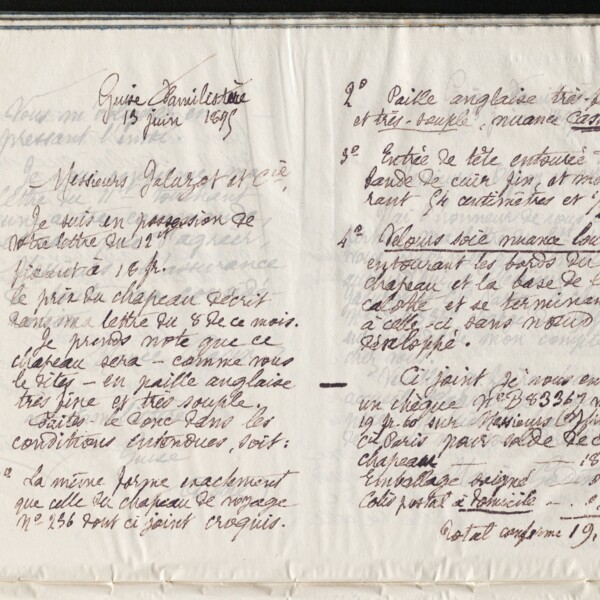 Guise Familistère
13 juin 1895
Messieurs Jaluzot et Cie,
Je suis en possession de
votre lettre du 12 ct
fixant à 18 fr.
le prix du chapeau décrit
dans ma lettre du 8 de ce mois.
Je prends note que ce
chapeau sera – comme vous
le dites – en paille anglaise
très fine et très souple.
Faites-le donc dans les
conditions entendues, soit:
1º La même forme exactement
que celle du chapeau de voyage
Nº 236 dont ci joint croquis.
2º Paille anglaise très-f
et très-souple, nuance cas
3º Entrée de tête entourée
bande de cuir fin, et me
rant 54 centimètres et
4º Velours soie nuance lou
entourant les bords du
chapeau et la base de l
calotte et se terminan
à celle-ci, sans nœud
développé.
Ci joint je vous en
un chèque Nº B83367
19 fr. 60 sur Messieurs
Cie Paris pour solde de c
chapeau — 18
Emballage soigné
Colis postal à domicile —
Total conforme 19.